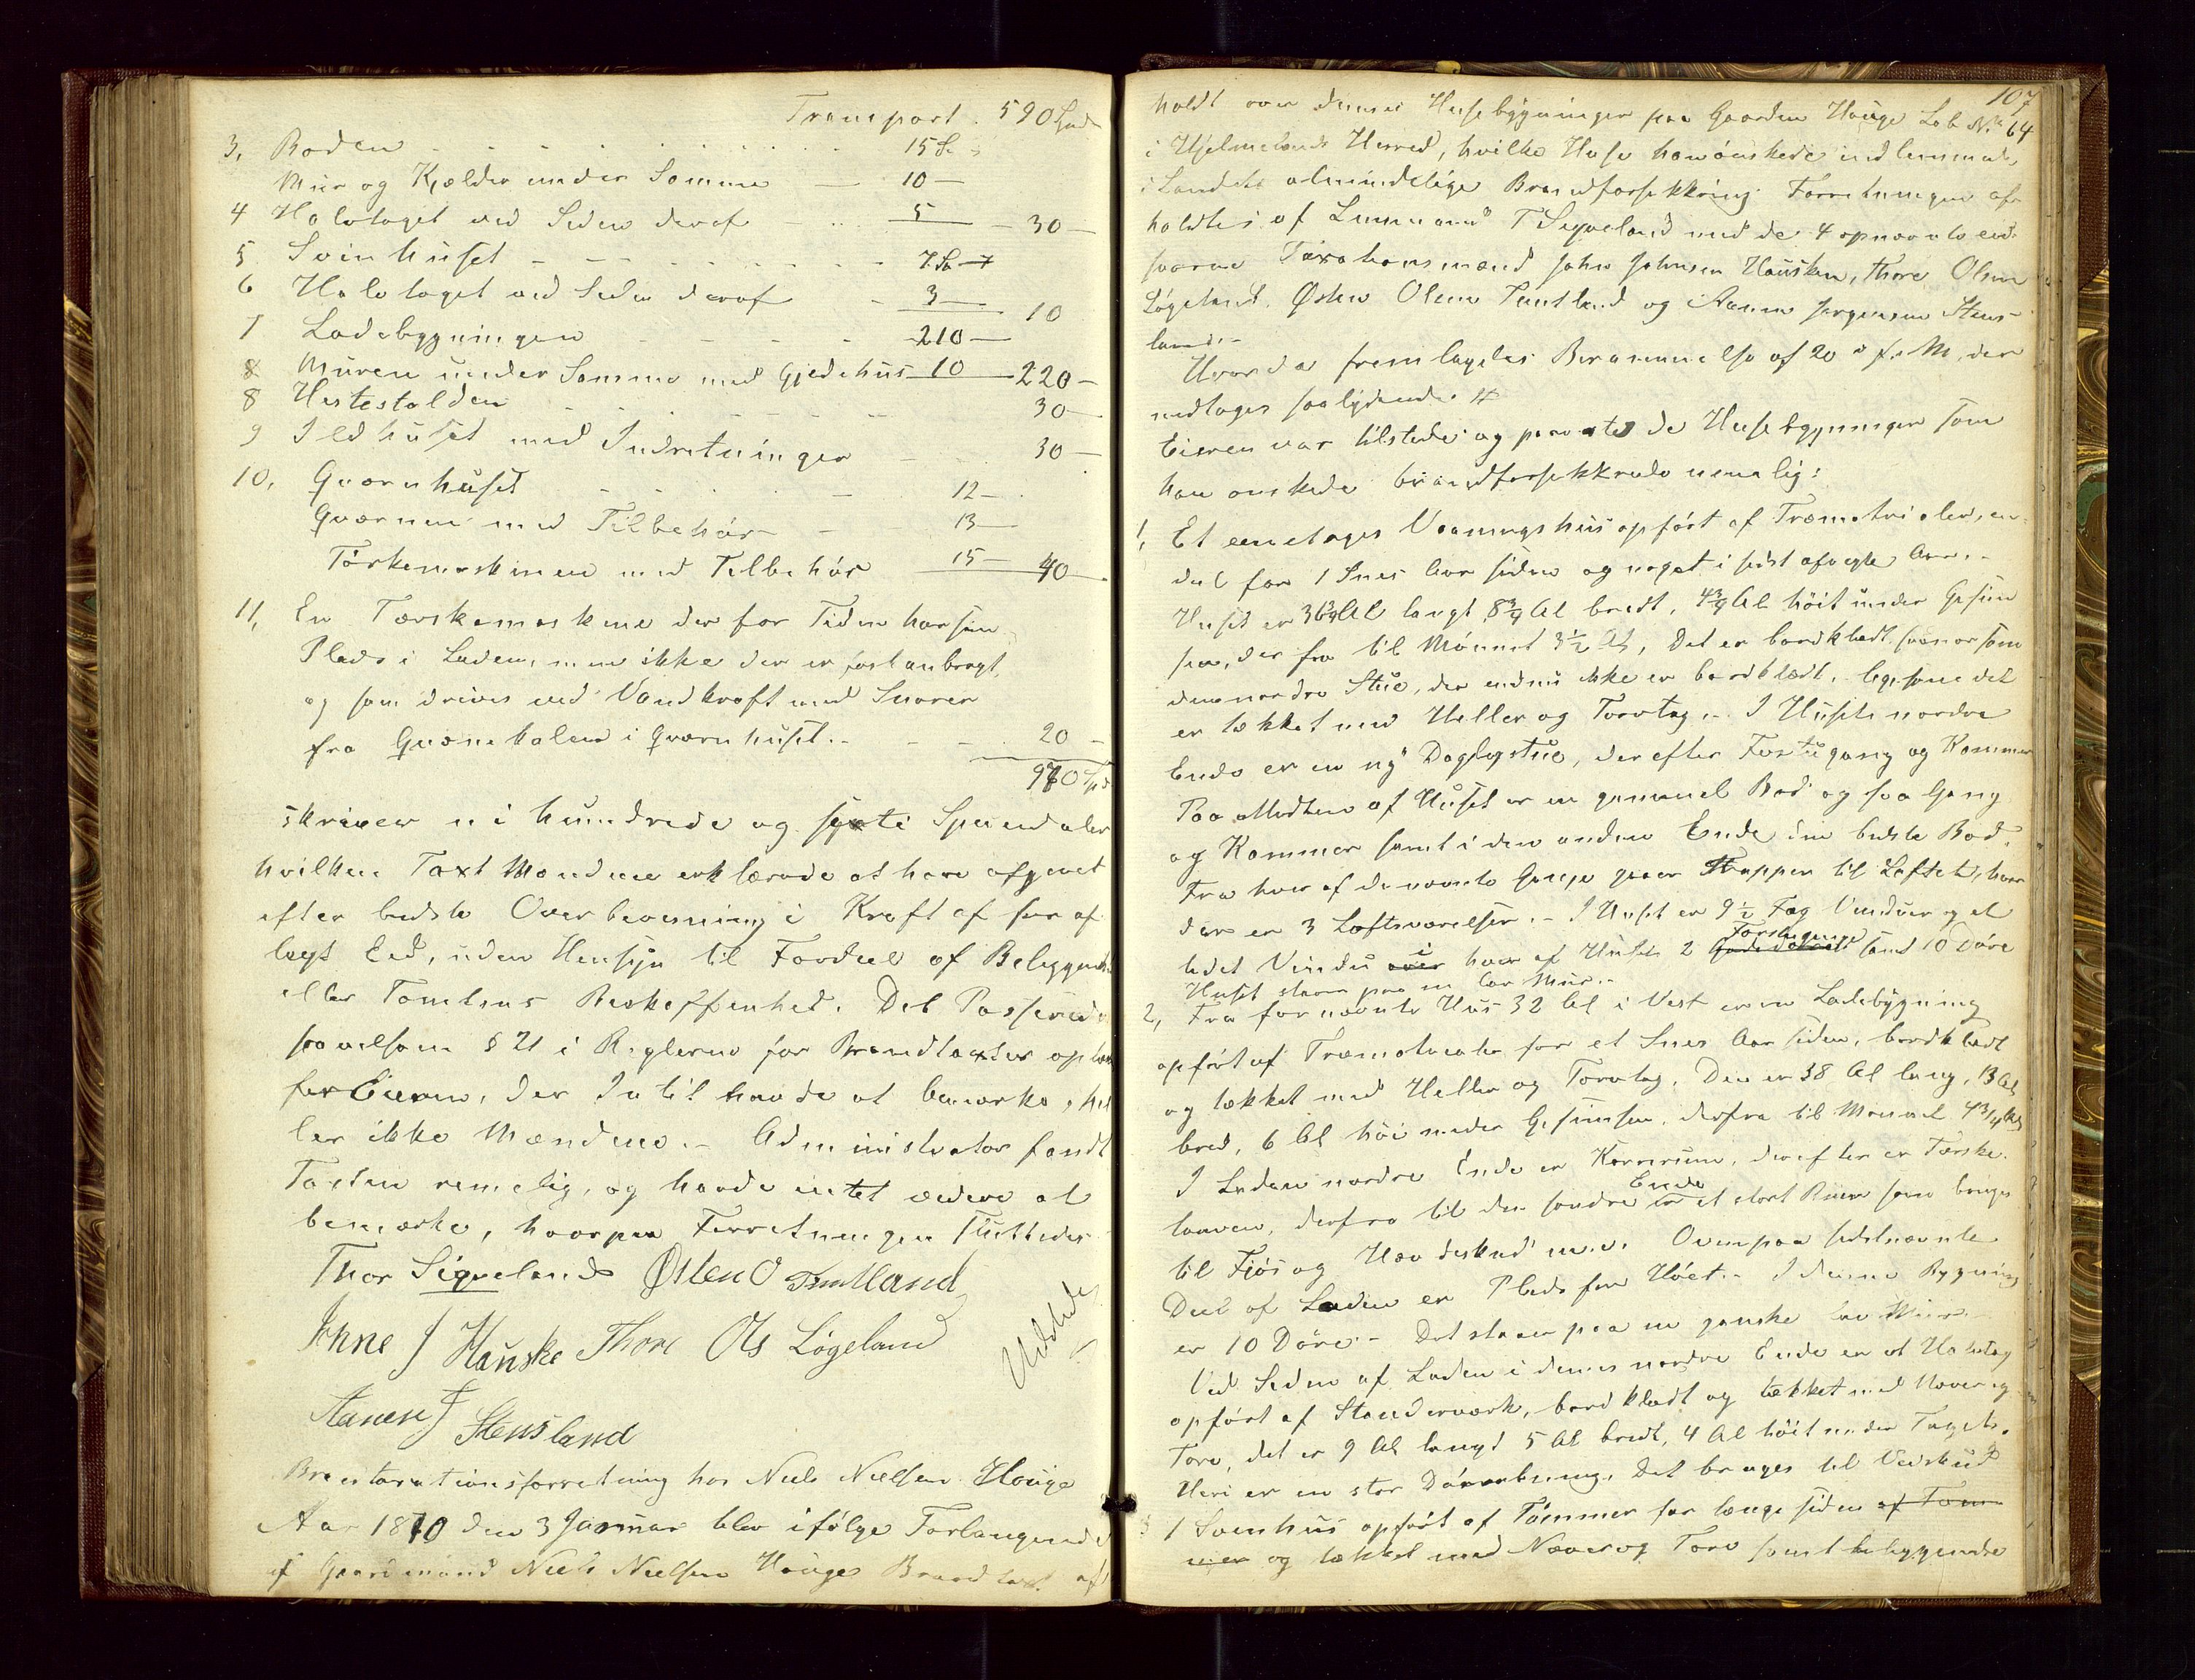 Transport. 590 Spd
3, Boden - - - - 15 Sp
Mur og Kjelder under Samme — 10 —
4 Halvtaget ved Siden deraf — 5 — 30 —
5 Svinhuset - - - - 7 Sp
6 Halvtaget ved Siden deraf - 3 — 10
7 Ladebygningen - - - - 210 —
8 Muren under Samme med Gjedehus 10 — 220 —
8 Hestestalden - - - - 30 —
9 Ildhuset med Indretninger — 30 —
10, Qværnhuset - - - — 12 —
Qværnen med Tilbehør — 13 —
Tærskemaskinen med Tilbehør 15 — 40 —
11, En Tærskemaskine der for Tiden har sin
Plads i Laden, men ikke der er fast anbragt,
og som drives ved Vandkraft med Snorer
fra Qværnekalen i Qværnhuset. - - - 20 -
970 Spd
skriver ni hundrede og sytti Speciedaler
hvilken Taxt Mændene erklærede at have afgivet
efter bedste Overbeviisning i Kraft af før af
lagt Eed, uden Hensyn til Fordeel af Beliggenhed
eller Tomtens Beskaffenhed. Det Passerede
saavelsom § 21 i Reglerne for Brandtaxter oplæst
for Eieren, der Intet havde at bemærke, hel
ler ikke Mændene. - Administrator fandt
Taxten rimelig, og havde intet videre at
bemærke, hvorpaa Forretningen sluttedes
Thor Siqveland Østen O Tuntland
Johne J Hauske Thore Ols Løgeland
Aanen J Stensland
Udstedt
Brandtaxtationsforretning hos Niels Nielsen Houge
Aar 1870 den 3 Januar blev ifølge Forlangende
af Gaardmand Niels Nielsen Houge Brandtaxt af
107
holdt over dennes Husebygninger paa Gaarden Houge Løb No 64
i Hjelmelands Herred, hvilke Huse han ønskede indlemmede
i Landets almindelige Brandforsikkring. Forretningen af
holdtes af Lensmand T Siqveland med de 4 opnævnte eed
svorne Taxationsmænd John Johnsen Hausken, Thore Olsen
Løgeland, Østen Olsen Tuntland og Aanen Jørgensen Stens-
land. -
Hvorda fremlagdes Berammelse af 20de f. M. der
indtages saalydende #
Eieren var tilstede og paaviste de Husebygninger som
han ønskede brandforsikkrede nemlig:
1, Et eenetages Vaaningshus opført af Træmaterialer, en
deel for 1 Snes Aar siden og noget i sidst afvigte Aar. -
Huset er 36¾ Al langt 8¾ Al bredt, 4¾ Al høit under Gesim
sen, der fra til Mønnet 3½ Al, Det er bordklædt saanær som
den nordre Stue, der endnu ikke er bordklædt, ligesom det
er tækket med Heller og Torvtag. - I Husets nordre
Ende er en ny Dagligstue, derefter Forstugang og Kammer
Paa Midten af Huset er en gammel Bod og saa Gang
og Kammer samt i den anden Ende den bedste Bod.
Fra hver af de nævnte Gange gaaer Trapper til Loftet, hvor
der er 3 Loftsværelser. - I Huset er 9½ Fag Vinduer og et
lidet Vindu over i hver af Husets 2 Forstugange samt 10 Døre
Huset staaer paa en lav Muur. -
2, Fra fornævnte Hus 32 Al i Vest er en Ladebygning
opført af Træmaterialer for et Snes Aar siden, bordklædt
og tækket med Heller og Torvtag. Den er 38 Al lang, 13 Al
bred, 6 Al høi under Gesimsen, derfra til Mønnet 4 3/4 Al
I Ladens nordre Ende er Kornrum, derefter er Tærske
laaven, derfra til den søndre Ende er et stort Rum som bruges
til Fjøs og Høvdeskud m. v. Ovenpaa sidstnævnte
Deel af Laden er Plads for Høet. - I denne Bygning
er 10 Døre. - Det staaer paa en ganske lav Muur. -
Ved Siden af Laden i dennes nordre Ende er et Halvtag
opført af Stænderværk, bordklædt og tækket med Næver og
Torv, det er 9 Al langt 5 Al bredt, 4 Al høit under Taget.
Heri er en stor Døraabning. Det bruges til Vedskud
3 1 Svinhus opført af Tømmer for længe siden af Tøm-
mer og tækket med Næver og Torv samt beliggende